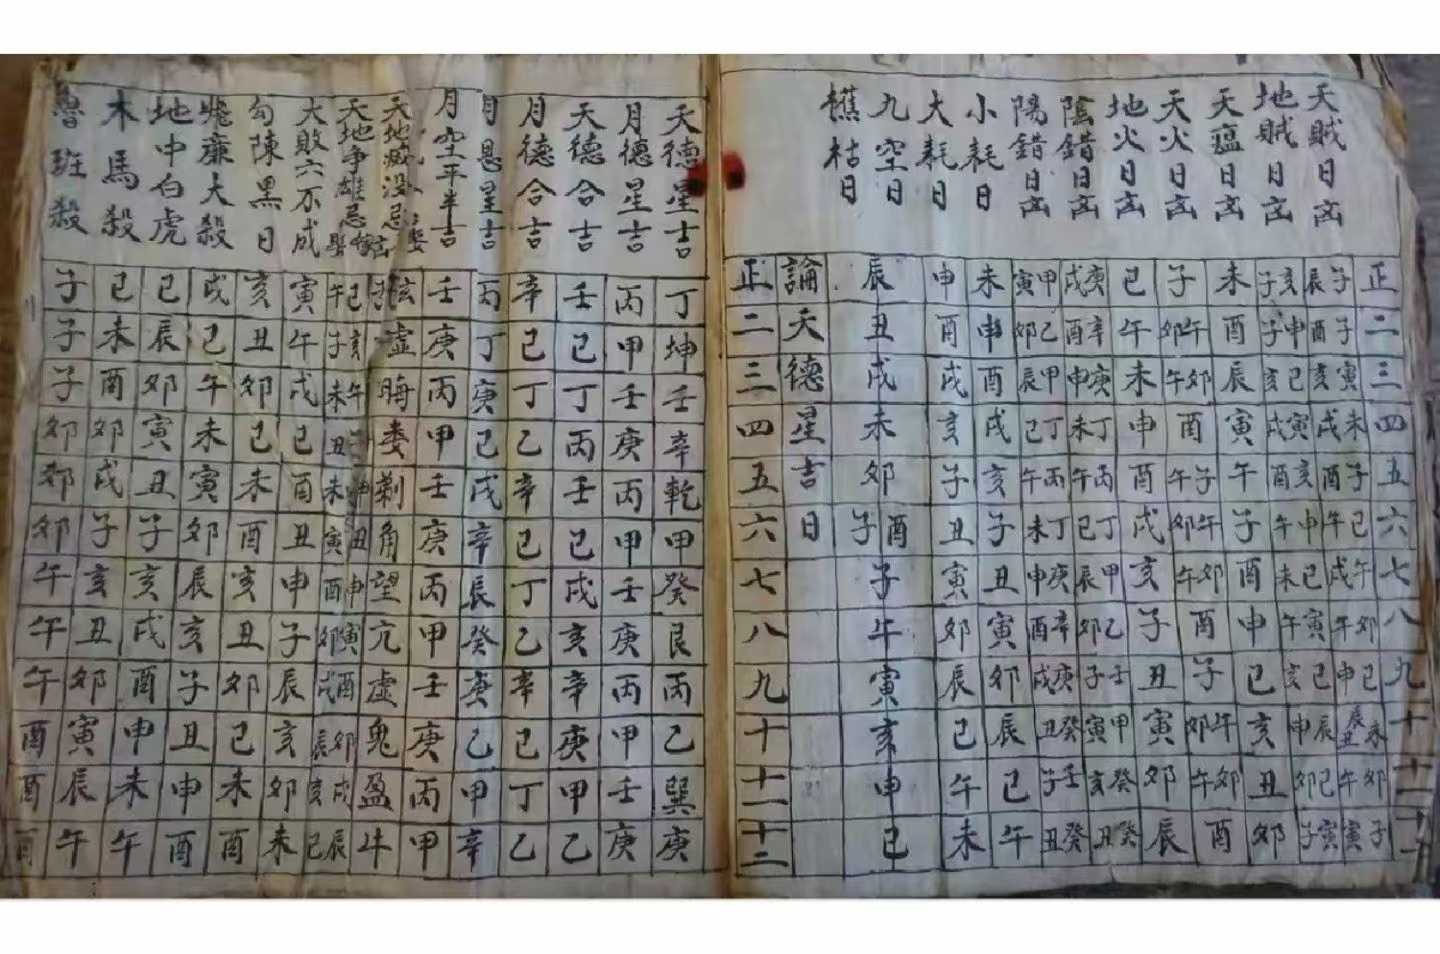 天賊日凶
地賊日凶
天瘟日凶
天火日凶
地火日凶
陰錯日凶
陽錯日凶
小耗日
大耗日
九空日
樵枯日
正二三四五六七八九十十一十二
子辰子酉寅亥未戌子酉巳午午戌卯午巳申未辰丑卯午子寅
亥子申子巳亥寅戌亥酉申午巳未寅午巳亥辰申巳卯寅子
未酉辰寅午子酉申巳亥丑卯
子午卯卯午酉子午午卯卯午酉子午卯卯午酉
巳午未申酉戌亥子丑寅卯辰
庚戌辛酉庚申丁未丙午丁巳甲辰乙卯壬子甲寅癸亥癸丑
甲寅己卯甲辰丁巳丙午丁未庚申辛酉庚戌癸丑壬子癸丑
未申酉戌亥子丑寅卯辰巳午
申酉戌亥子丑寅卯辰巳午未
辰丑戌未卯酉子子午寅亥申巳
論天德星吉日
正二三四五六七八九十十一十二
天德星吉
月德星吉
天德合吉
月德合吉
月恩星吉
月空平半吉
天地滅没忌
天地争雄忌
大敗六不成
勾陳黑日
飛廉大殺
地中白虎
木馬殺
魯班殺
丁坤壬辛乾甲癸艮丙乙巽庚
丙甲壬庚丙甲壬庚丙甲壬庚
壬己丁丙壬己戌亥辛庚甲乙
辛己丁乙辛己丁乙辛己丁乙
丙丁庚己戊辛辰癸庚乙甲辛
壬庚丙甲壬庚丙甲壬庚丙甲
弦虛晦娄剃角望亢虛鬼盈牛
巳午亥子午未丑未丑寅申酉寅卯酉戌卯辰戌亥辰巳
寅午戌巳酉丑申子辰亥卯未
亥丑卯巳未酉亥丑卯巳未酉
戌巳午未寅卯辰亥子丑申酉
巳辰卯寅丑子亥戌酉申未午
巳未酉卯戌子亥丑卯寅辰午
子子子卯卯卯午午午酉酉酉